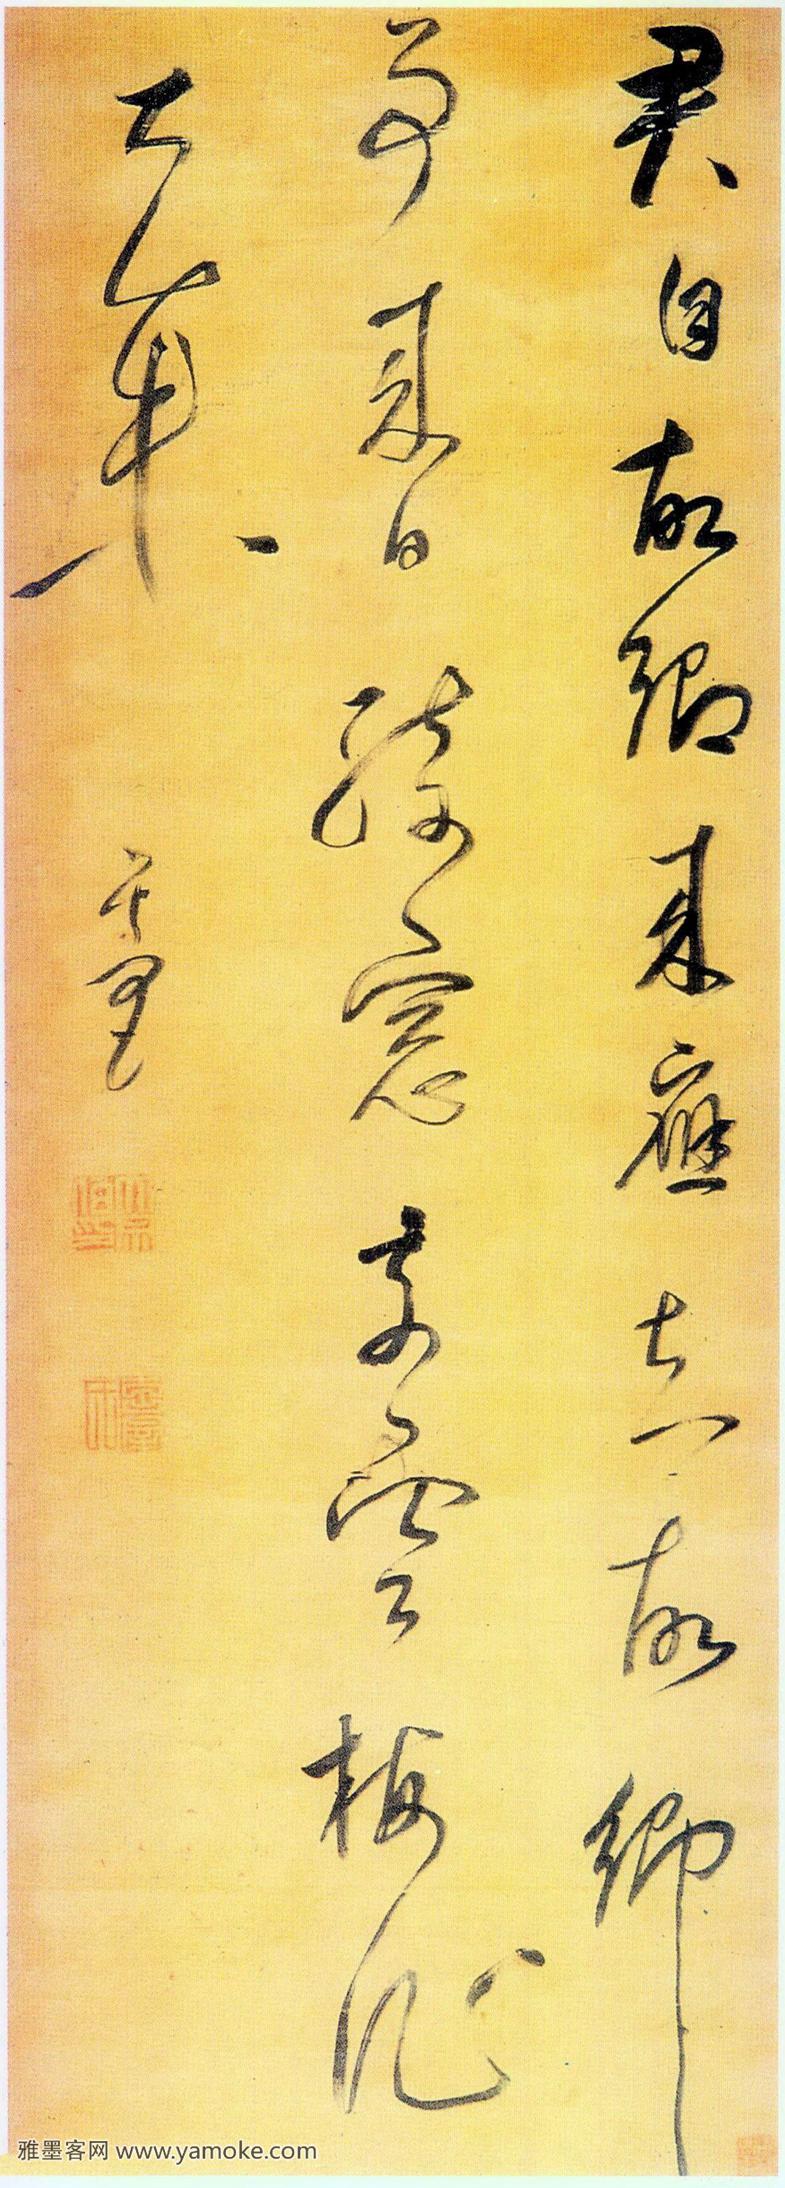 君自故鄉來應知故鄉
事來日綺窓前寒梅
其昌
雅墨客网 www.yamoke.com